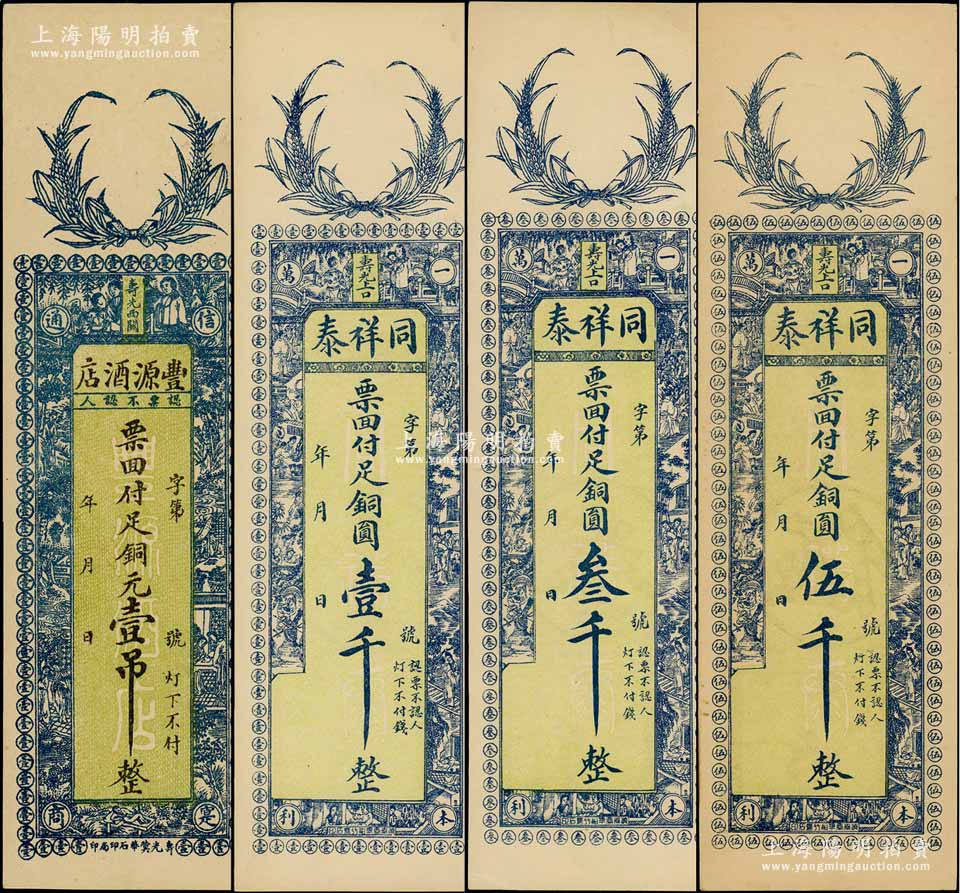 上海陽明拍賣
www.yangmingauction.com
壽光西關
信
通
豐源酒店
認票不認人
字第
號
灯下不付
票面付足銅元壹吊整
年
月
日
商
壽光上口
一
萬
同祥泰
字第
號
認票不認人
灯下不付錢
票面付足銅圓壹千整
年
月
日
本
利
壽光上口
一
萬
同祥泰
字第
號
認票不認人
灯下不付錢
票面付足銅圓叁千整
年
月
日
本
利
壽光上口
一
萬
同祥泰
字第
號
認票不認人
灯下不付錢
票面付足銅圓伍千整
年
月
日
本
利
上海陽明拍賣
www.yangmingauction.com
上海陽明拍賣
www.yangmingauction.com